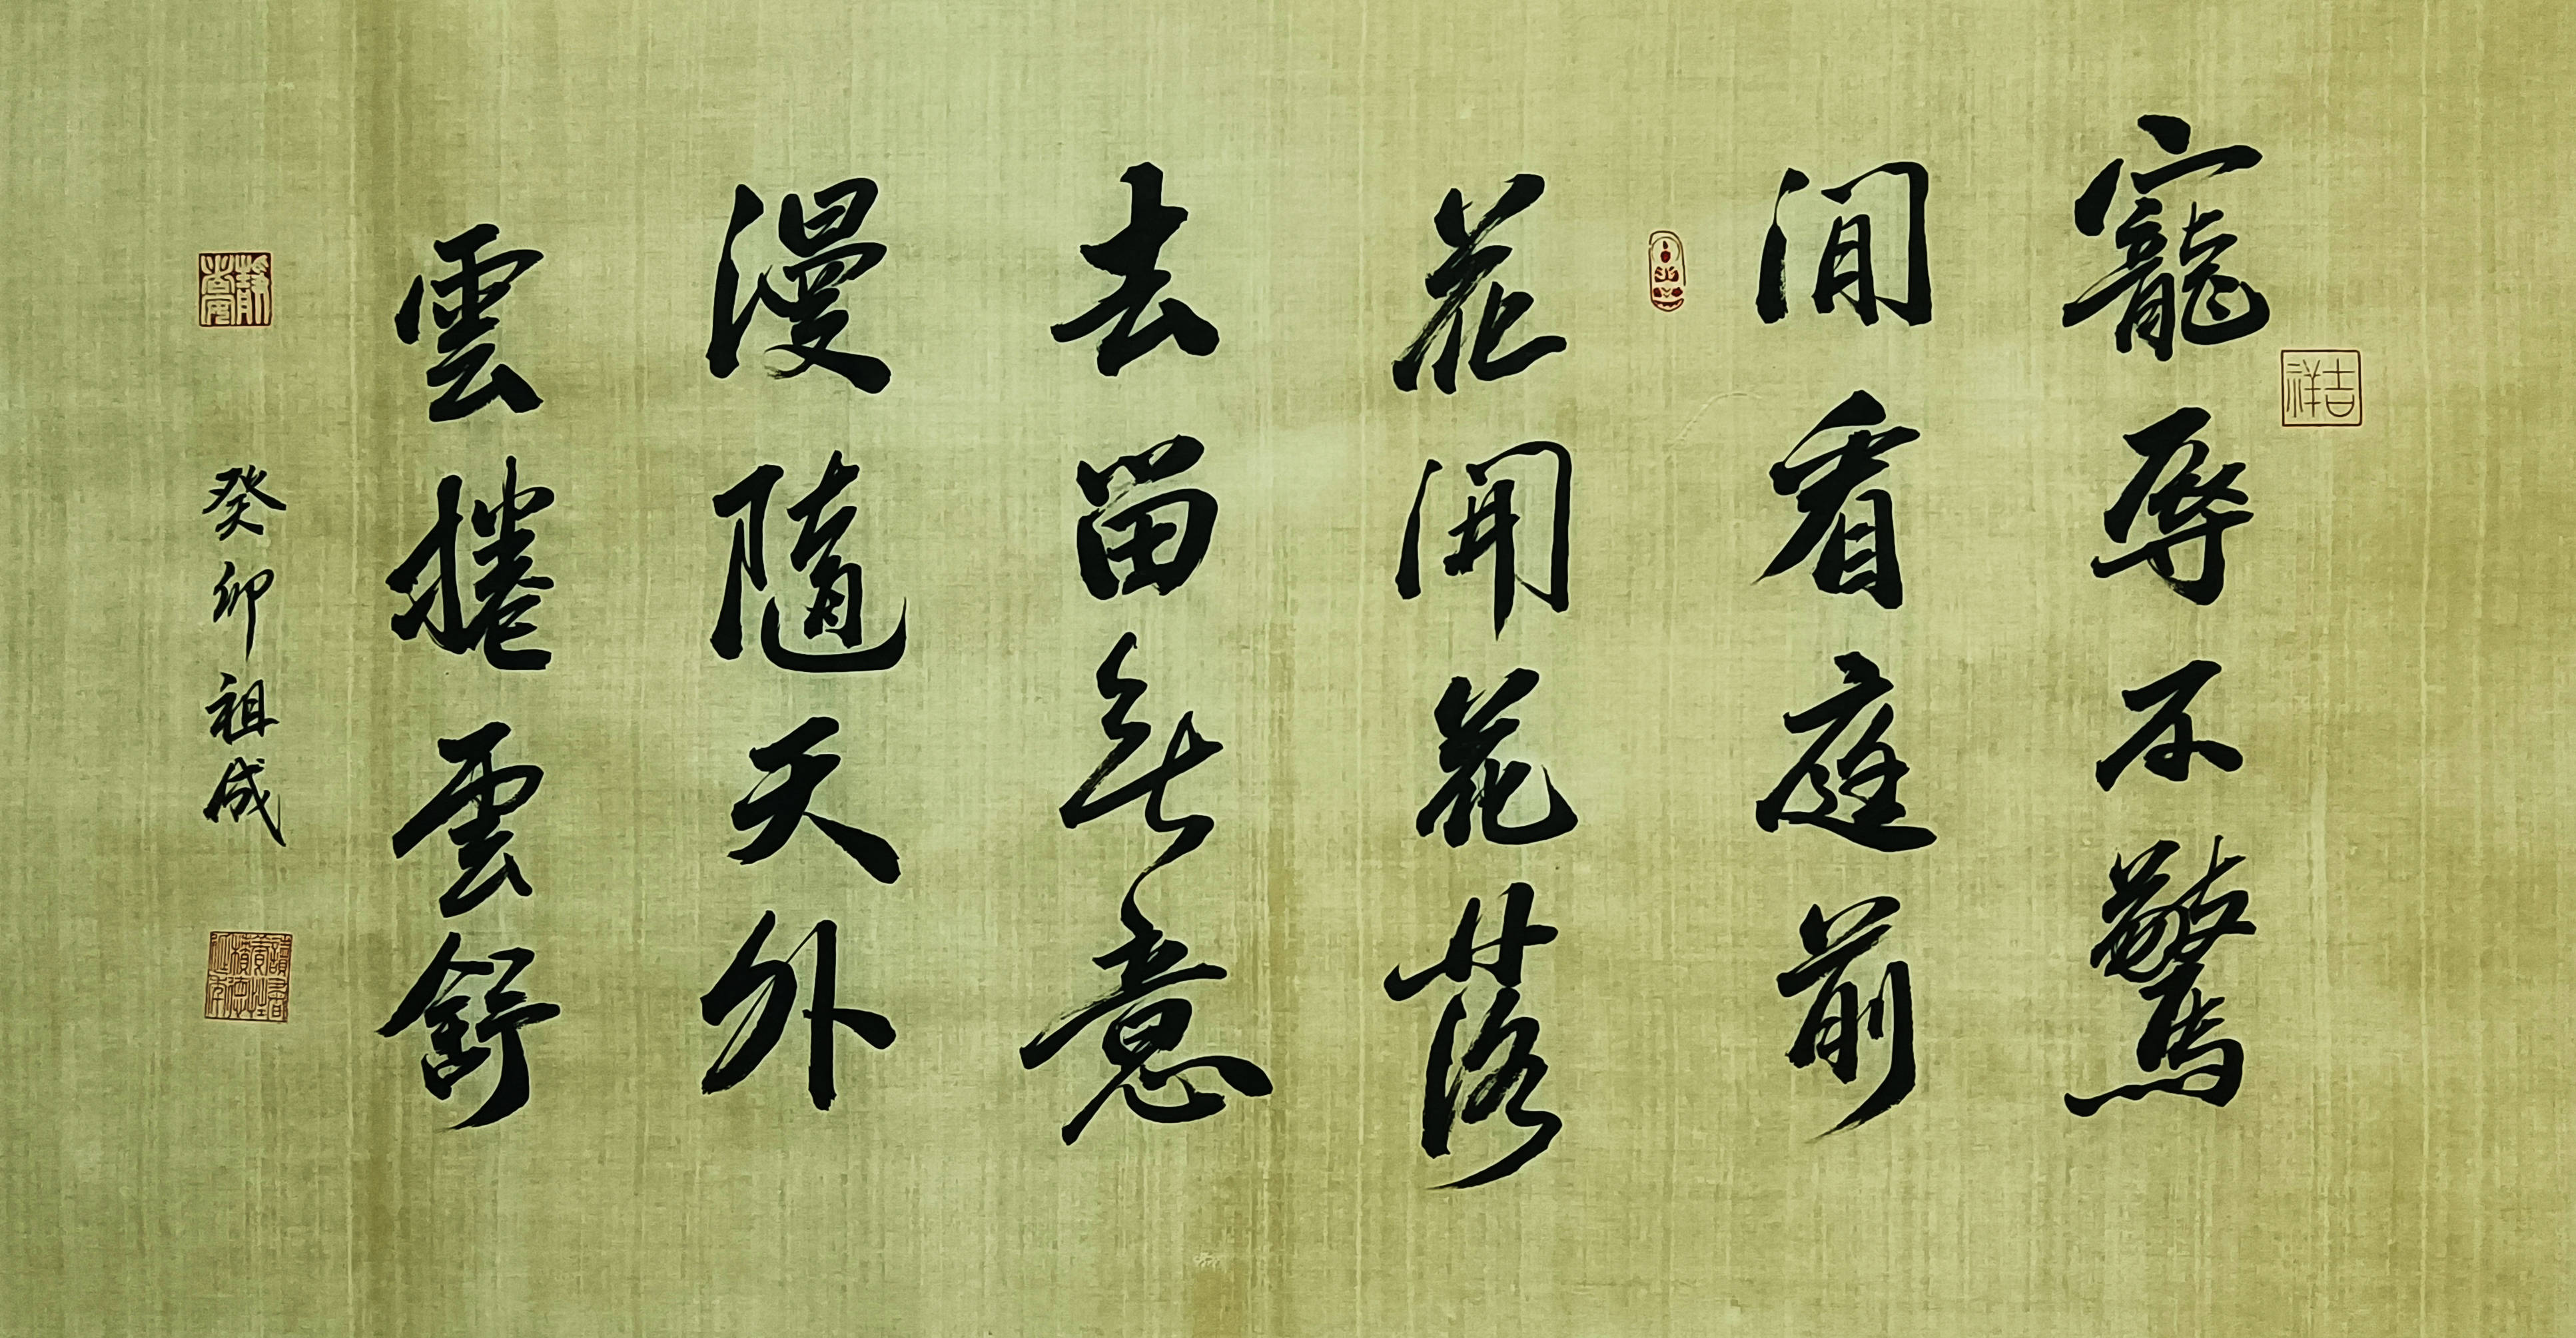 寵辱不驚
閒看庭前
花開花落
去留無意
漫隨天外
雲捲雲舒
癸卯祖成
吉祥